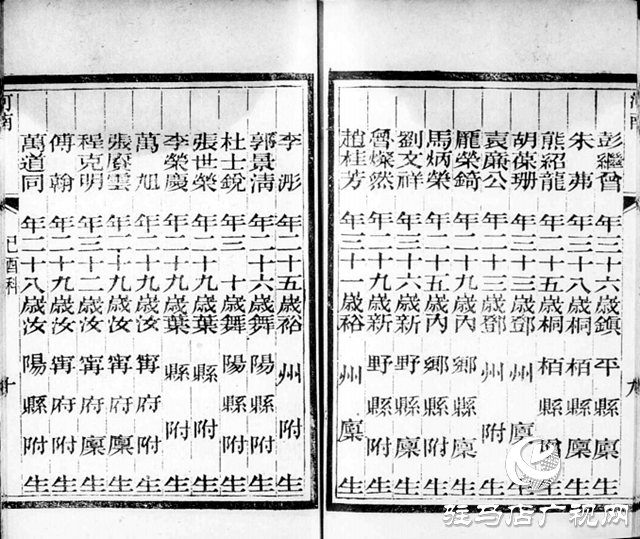 彭繼曾 年三十六歲鎮平縣廩生
朱弗 年三十八歲桐柏縣廩生
熊紹龍 年二十五歲桐柏縣附生
胡葆珊 年三十三歲鄧州廩生
袁廉公 年二十三歲鄧州附生
龐榮錡 年二十九歲內鄉縣廩生
馬炳榮 年二十五歲內鄉縣附生
劉文祥 年三十六歲新野縣廩生
魯燦然 年二十九歲新野縣附生
趙桂芳 年三十一歲裕州廩生
李彤 年二十五歲裕州附生
郭景清 年二十六歲舞陽縣附生
杜士銳 年三十歲舞陽縣附生
張世榮 年二十九歲葉縣附生
李榮慶 年二十九歲葉縣附生
萬旭 年二十九歲汝甯府附生
張慶雲 年二十九歲汝甯府廩生
程克明 年三十二歲汝甯府廩生
傅翰 年二十九歲汝甯府附生
萬道同 年二十八歲汝陽縣附生
河南 己酉科 十
驻马店广视网